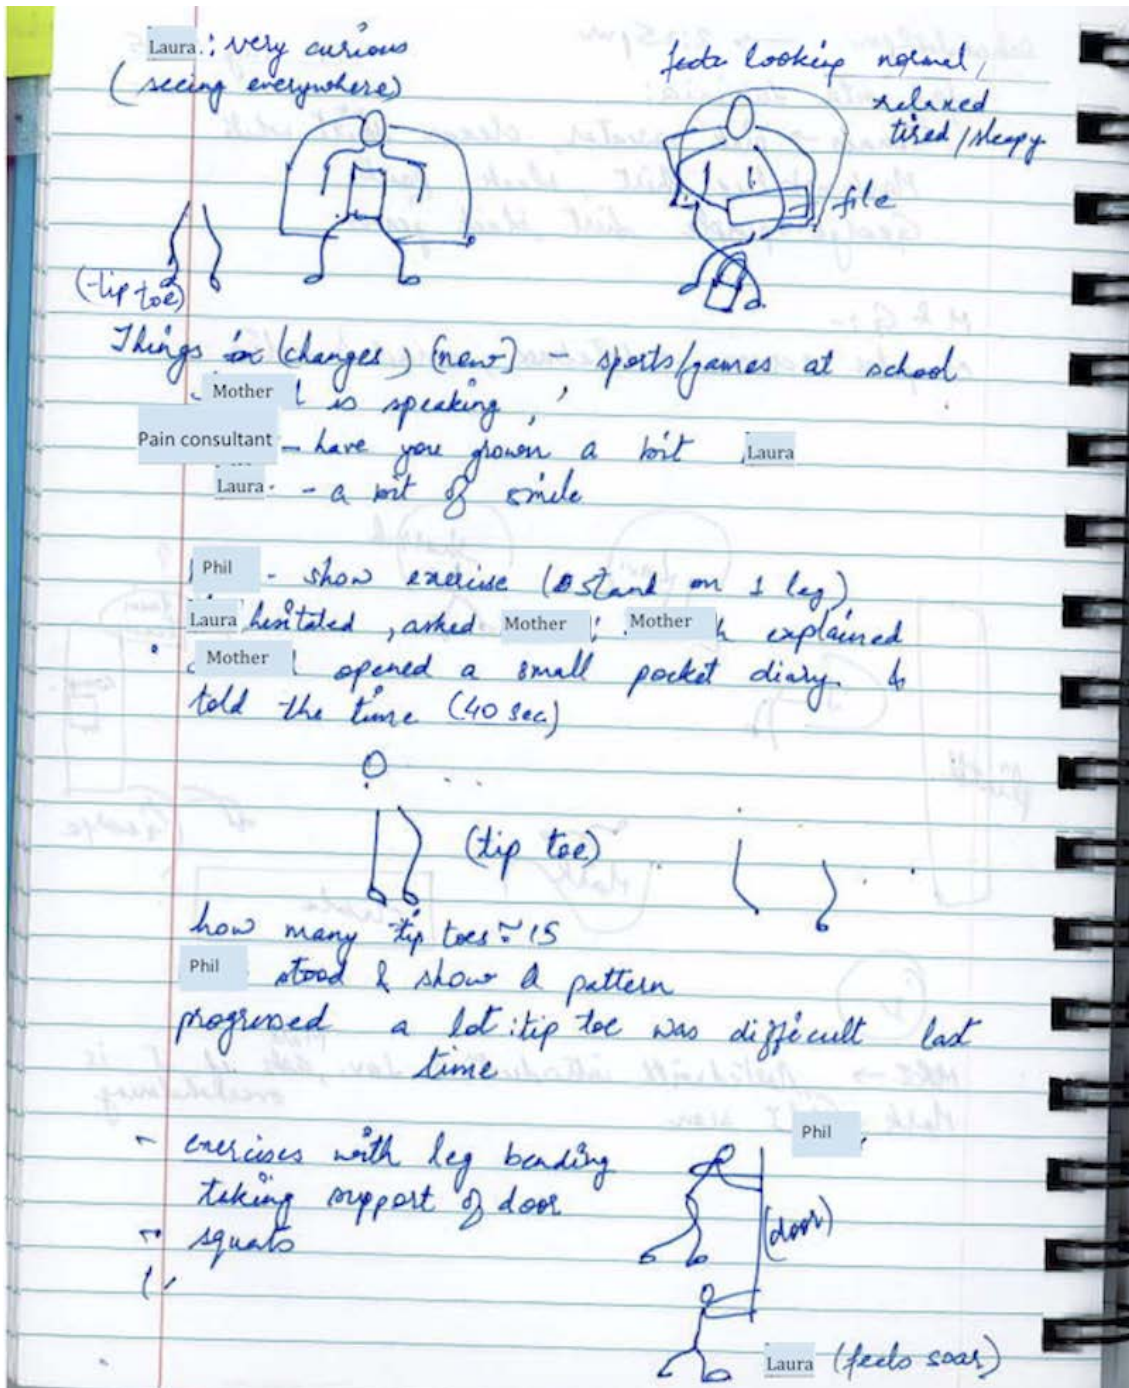 Laura : very curious
(seeing everywhere)
looking normal,
relaxed
tired/sleepy
file
(tip toe)
Things in (changes) (new) - sports/games at school
Mother is speaking,
Pain consultant - have you grown a bit Laura
Laura - a bit of smile
Phil - show exercise (stand on 1 leg)
Laura hesitated, asked Mother; Mother explained
Mother opened a small pocket diary &
told the time (40 sec)
(tip toe)
how many tip toes ≈ 15
Phil stood & show a pattern
progressed a lot : tip toe was difficult last
time
Phil
- exercises with leg bending
taking support of door
- squats
(door)
Laura (feels soar)